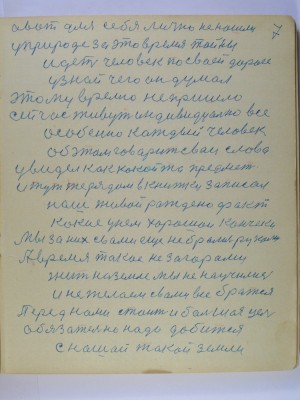 авот для себя лично не нашли
у природе за это время тайны
идет человек по своей дороге
узнай чего он думал
этому время не пришло
сейчас живут индивидуално все
особенно каждый человек
об этом говорит сваи слова
увидел как какой то предмет
и тут же рядом в книжку записал
наш живой раждено факт
какие у нем хорошои кончики
Мы за них свами еще не брались рукой
А время такое не загарами
жит на земле мы не научились
и не желаем свами все братся
Перед нами стоит и болшая цел
обязателно надо добится
с нашай такой земли